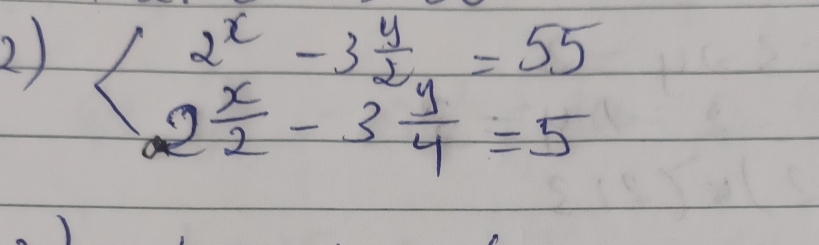 2) { 2^x - 3^{y/2} = 55
2^{x/2} - 3^{y/4} = 5